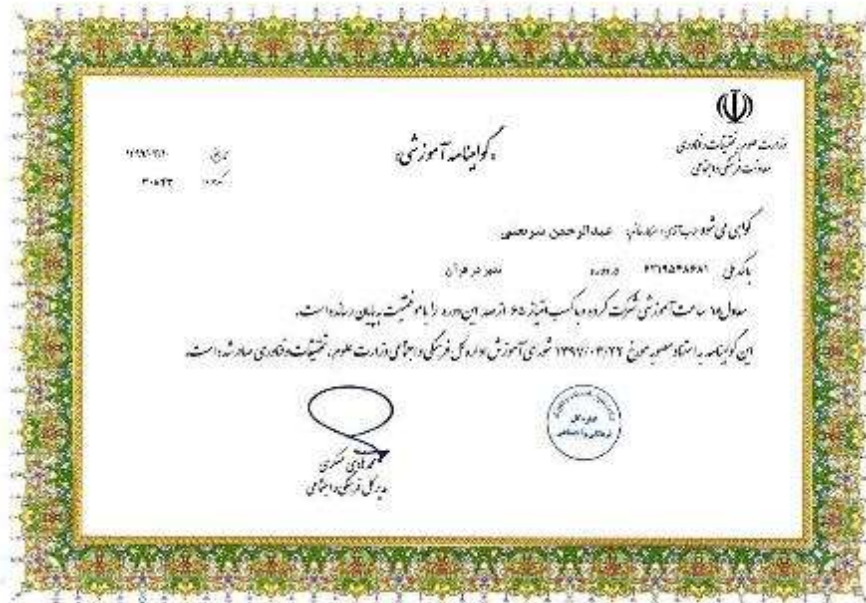 وزارت علوم، تحقیقات و فناوری
معاونت فرهنگی و اجتماعی
«گواهینامه آموزشی»
تاریخ:
۳۰۸۴۳
گواهی می شود جناب آقای / سرکار خانم: عبدالرحمن
با کد ملی در دوره تدبر در قرآن
معادل ساعت آموزشی شرکت کرده و با کسب امتیاز ۶۵ از صد این دوره را با موفقیت به پایان رسانده است.
این گواهینامه به استناد مصوبه مورخ ۱۳۹۷/۰۳/۲۲ شورای آموزش اداره کل فرهنگی و اجتماعی وزارت علوم، تحقیقات و فناوری صادر شده است.
اداره کل
فرهنگی و اجتماعی
محمد هادی عسکری
مدیر کل فرهنگی و اجتماعی